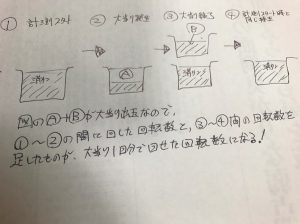 ① 計測スタート
② 大当り発生
③ 大当り終了
④ 計測スタート時と同じ持玉
満タン
Ⓐ
Ⓑ
満タン
満タン
図のⒶ+Ⓑが大当り出玉なので、
①〜②の間に回した回転数と、③〜④間の回転数を
足したものが、大当り1回分で回せた回転数になる!